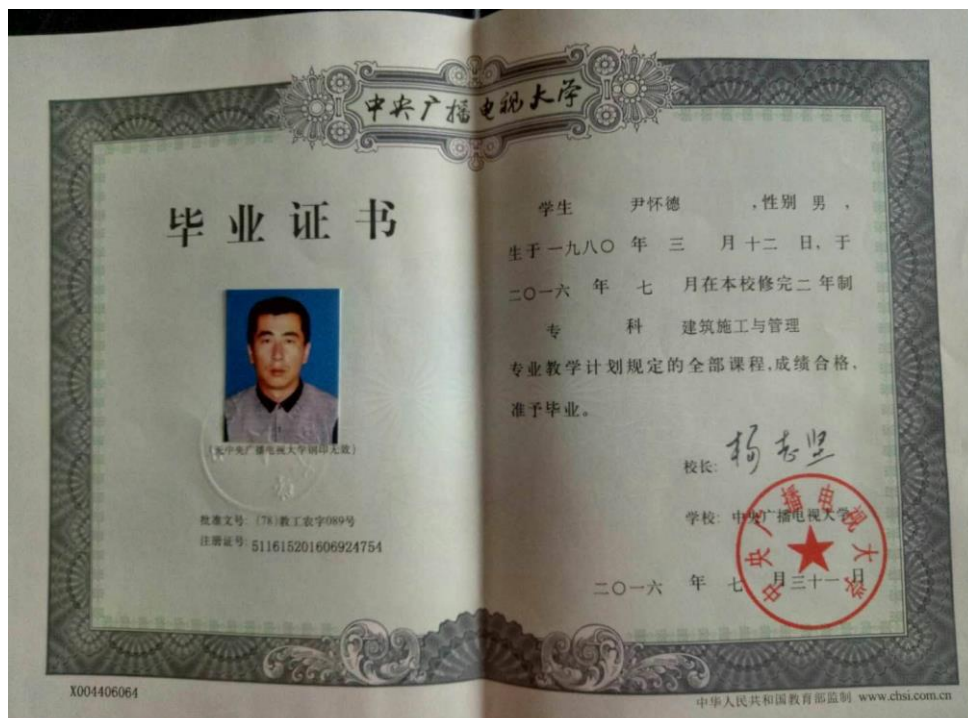 中央广播电视大学
毕业证书
(无中央广播电视大学钢印无效)
批准文号: (78)教工农字089号
注册证号: 511615201606924754
X004406064
学生 尹怀德 ,性别 男 ,
生于 一九八〇 年 三 月 十二 日, 于
二〇一六 年 七 月在本校修完 二 年制
专 科 建筑施工与管理
专业教学计划规定的全部课程,成绩合格,
准予毕业。
校长: 杨志坚
学校: 中央广播电视大学
中央广播电视大学
二〇一六 年 七 月 三十一 日
中华人民共和国教育部监制 www.chsi.com.cn